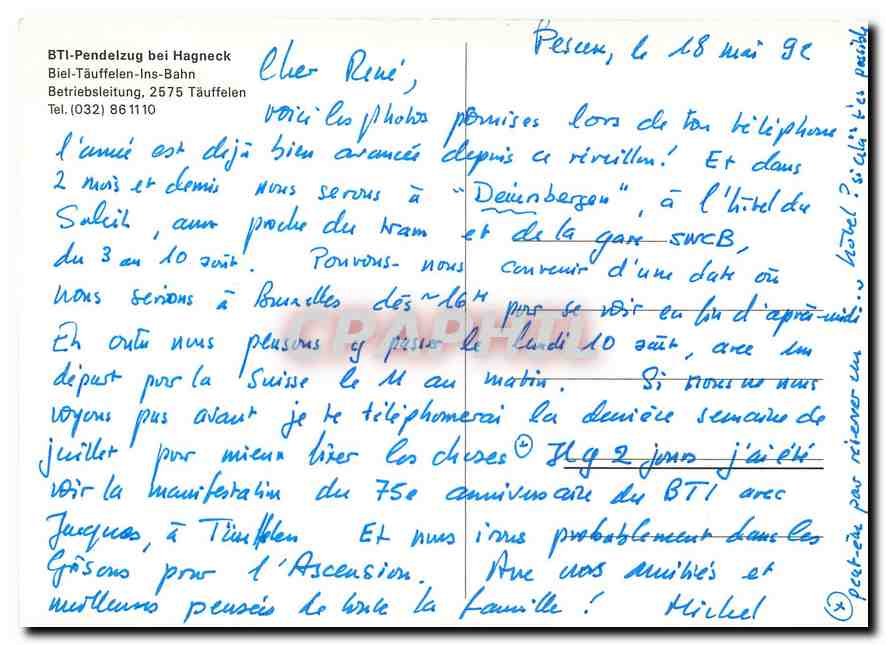 BTI-Pendelzug bei Hagneck
Biel-Täuffelen-Ins-Bahn
Betriebsleitung, 2575 Täuffelen
Tel. (032) 86 11 10
le 18 mai 92
Cher René,
voici les photos promises lors de ton téléphone
l'année est déjà bien avancée depuis ce réveillon! Et dans
2 mois et demis nous serons à "Deinsbergen", à l'hôtel du
Soleil, proche du tram et de la gare SNCB,
du 3 au 10 août. Pouvons-nous convenir d'une date où
nous serions à Bruxelles dès ~16 h pour se voir en fin d'après-midi..
En outre nous pensons y passer le lundi 10 août, avec un
départ pour la Suisse le 11 au matin. Si nous ne nous
voyons pas avant je te téléphonerai la dernière semaine de
juillet pour mieux fixer les choses (+) Il y 2 jours j'ai été
voir la manifestation du 75e anniversaire du BTI avec
Jacques, à Täuffelen Et nous irons probablement dans les
Grisons pour l'Ascension. Avec nos amitiés et
meilleures pensées de toute la famille! Michel
(+) peut-être par réserver un hôtel? si cela t'es possible
CPAPHIL